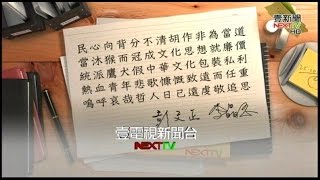 壹新聞
NEXTTV
HD
民心向背分不清胡作非為當道
當沐猴而冠成文化思想就廉價
統派鷹犬假中華文化包裝私利
熱血青年悲歌慷慨致遠而任重
嗚呼哀哉哲人日已遠虔敬追思
彭文正 李晶玉
壹電視新聞台
NEXTTV
NEXTTV